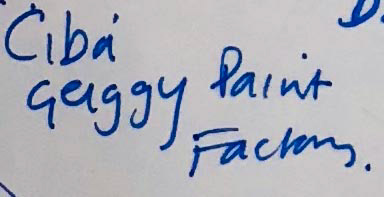 D.
Ciba
Geiggy Paint
Factory.